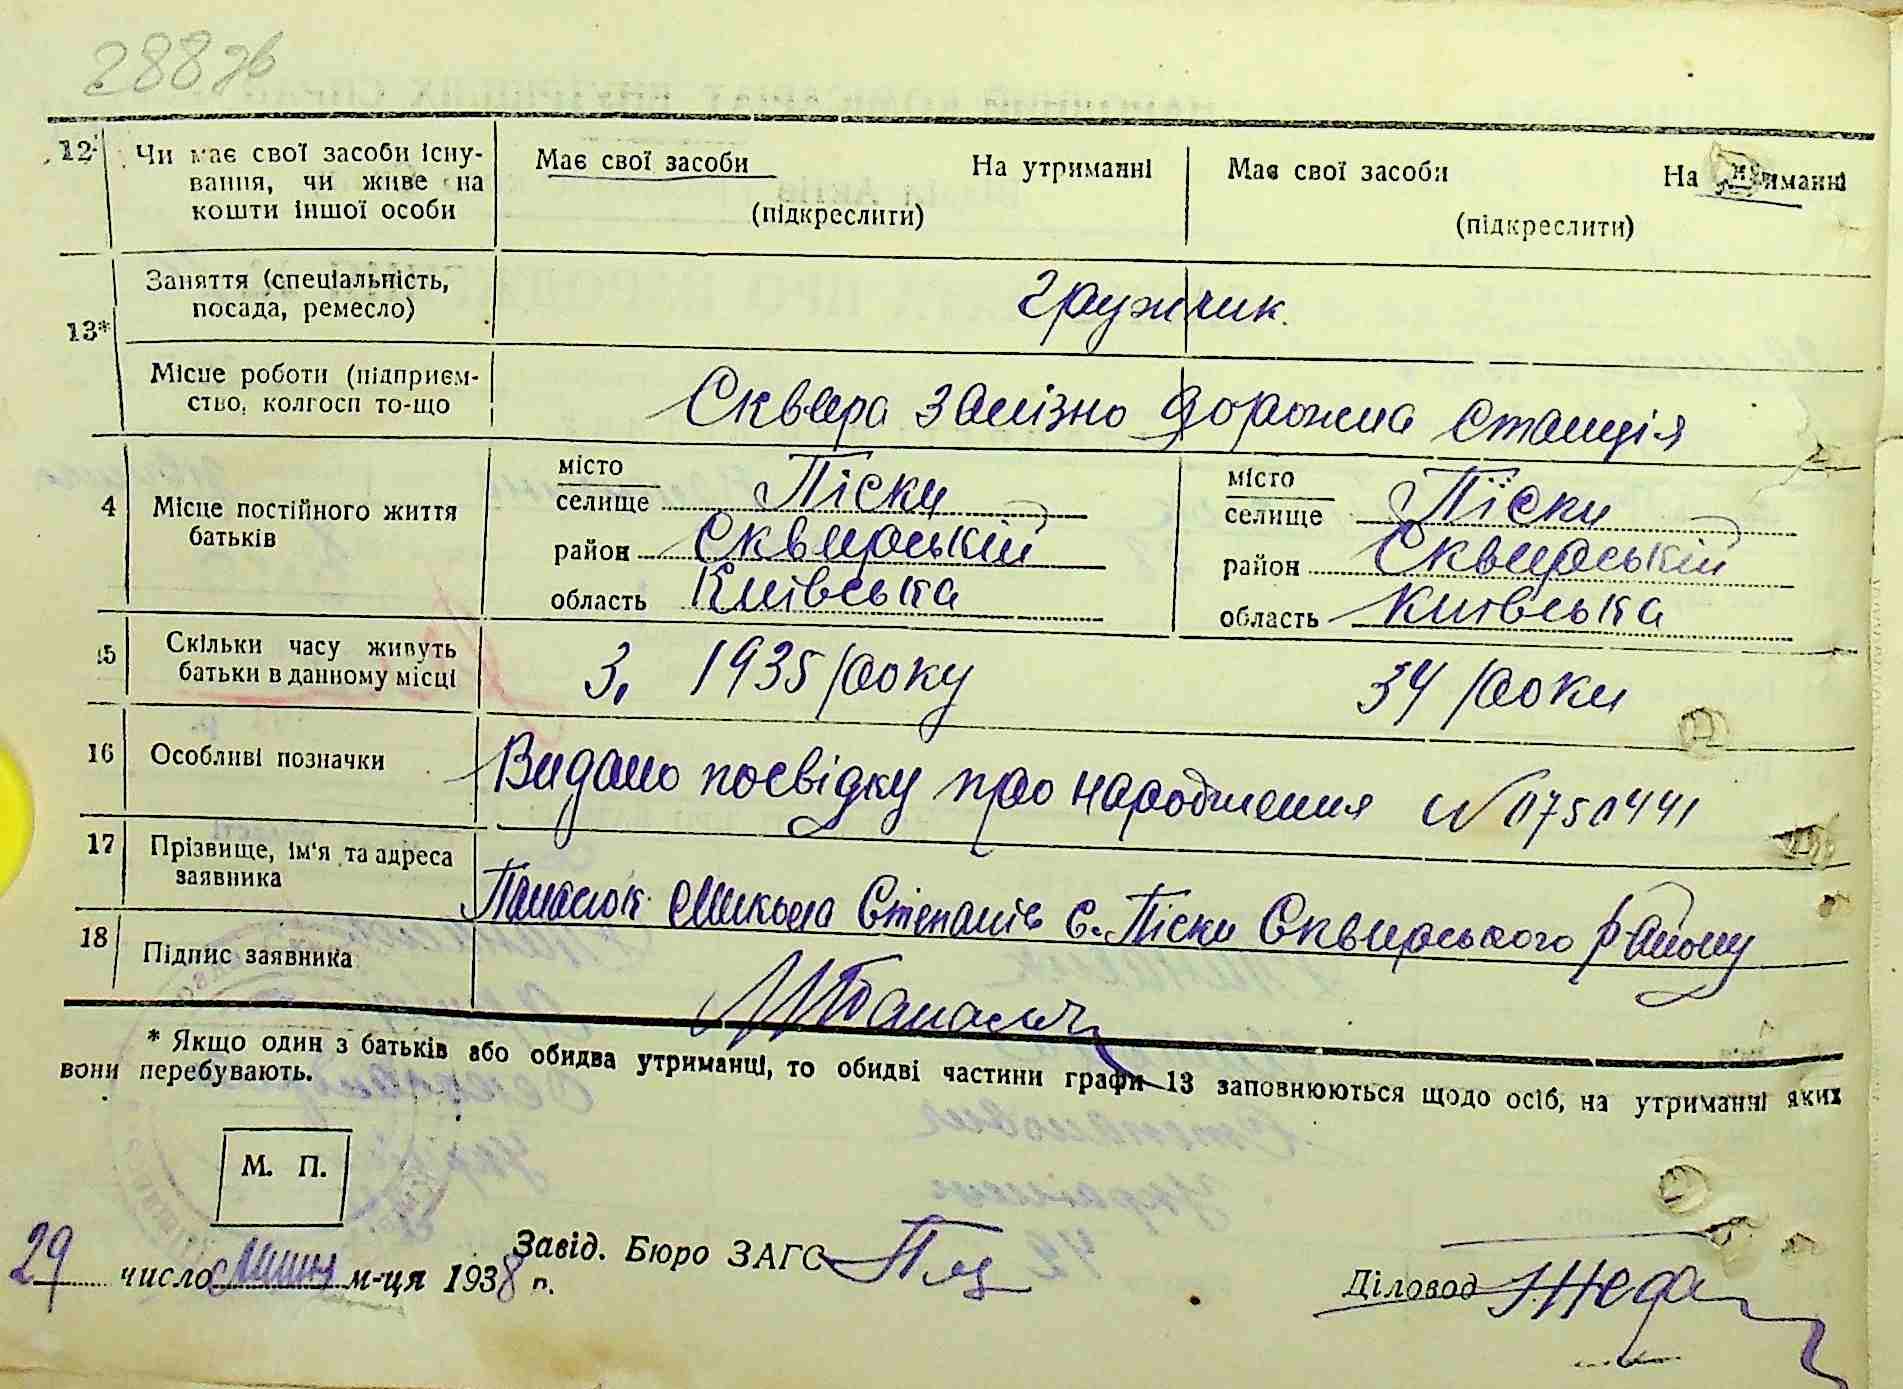 288 зв
12 Чи має свої засоби існу-
вання, чи живе на
кошти іншої особи
Має свої засоби На утриманні
(підкреслити)
Має свої засоби На утриманні
(підкреслити)
13* Заняття (спеціальність,
посада, ремесло)
Гружчик.
Місце роботи (підприєм-
ство, колгосп то-що
Сквира залізно дорожна станція
4 Місце постійного життя
батьків
місто
селище Піски
район Сквирській
область Київська
місто
селище Піски
район Сквирській
область Київська
15 Скільки часу живуть
батьки в данному місці
З, 1935 року
34 роки
16 Особливі позначки
Видано посвідку про народження № 0750441
17 Прізвище, ім'я та адреса
заявника
Панасюк Микола Степанів с. Піски Сквирського району
18 Підпис заявника
МПанасюк
* Якщо один з батьків або обидва утриманці, то обидві частини графи 13 заповнюються щодо осіб, на утриманні яких
вони перебувають.
М. П.
29 число м-ця 1938 р.
Завід. Бюро ЗАГС
Діловод